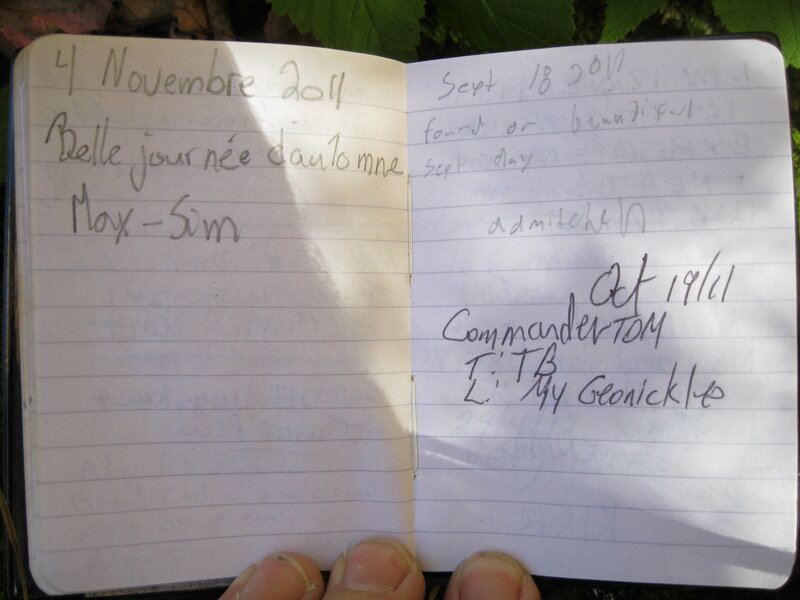 4 Novembre 2011
Belle journée d'automne
Max-Sim
Sept 18 2011
found on beautiful
sept day
admitchell
Oct 19/11
CommanderTOM
T: TB
L: My Geonickle